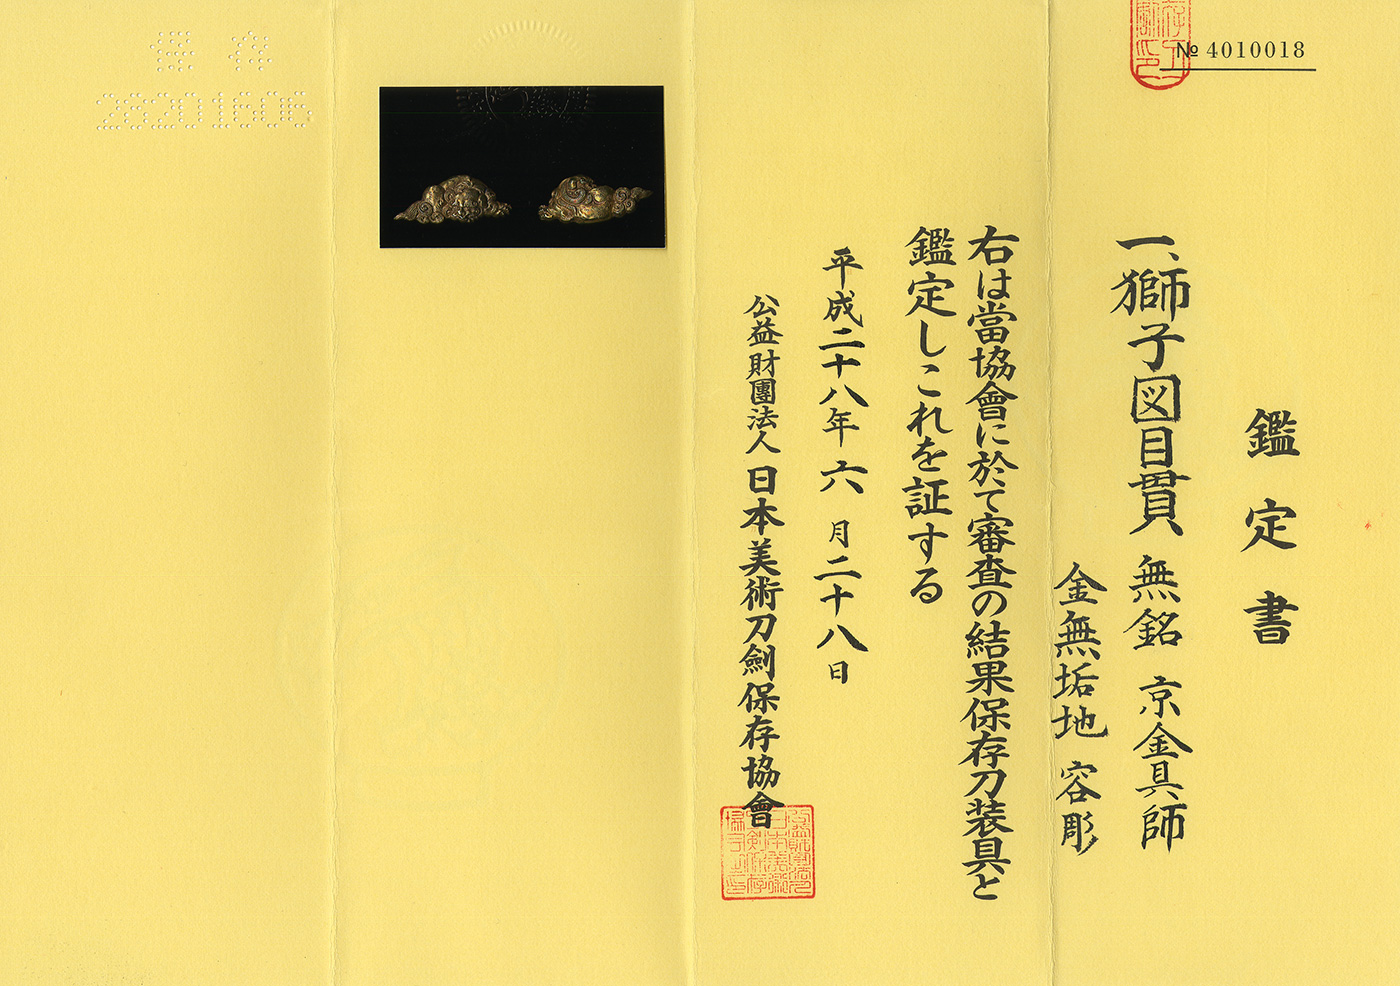 № 4010018
鑑定書
一、獅子図目貫 無銘 京金具師
金無垢地 容彫
右は當協會に於て審査の結果保存刀装具と
鑑定しこれを証する
平成二十八年六月二十八日
公益財團法人日本美術刀劍保存協會
保存
28201606